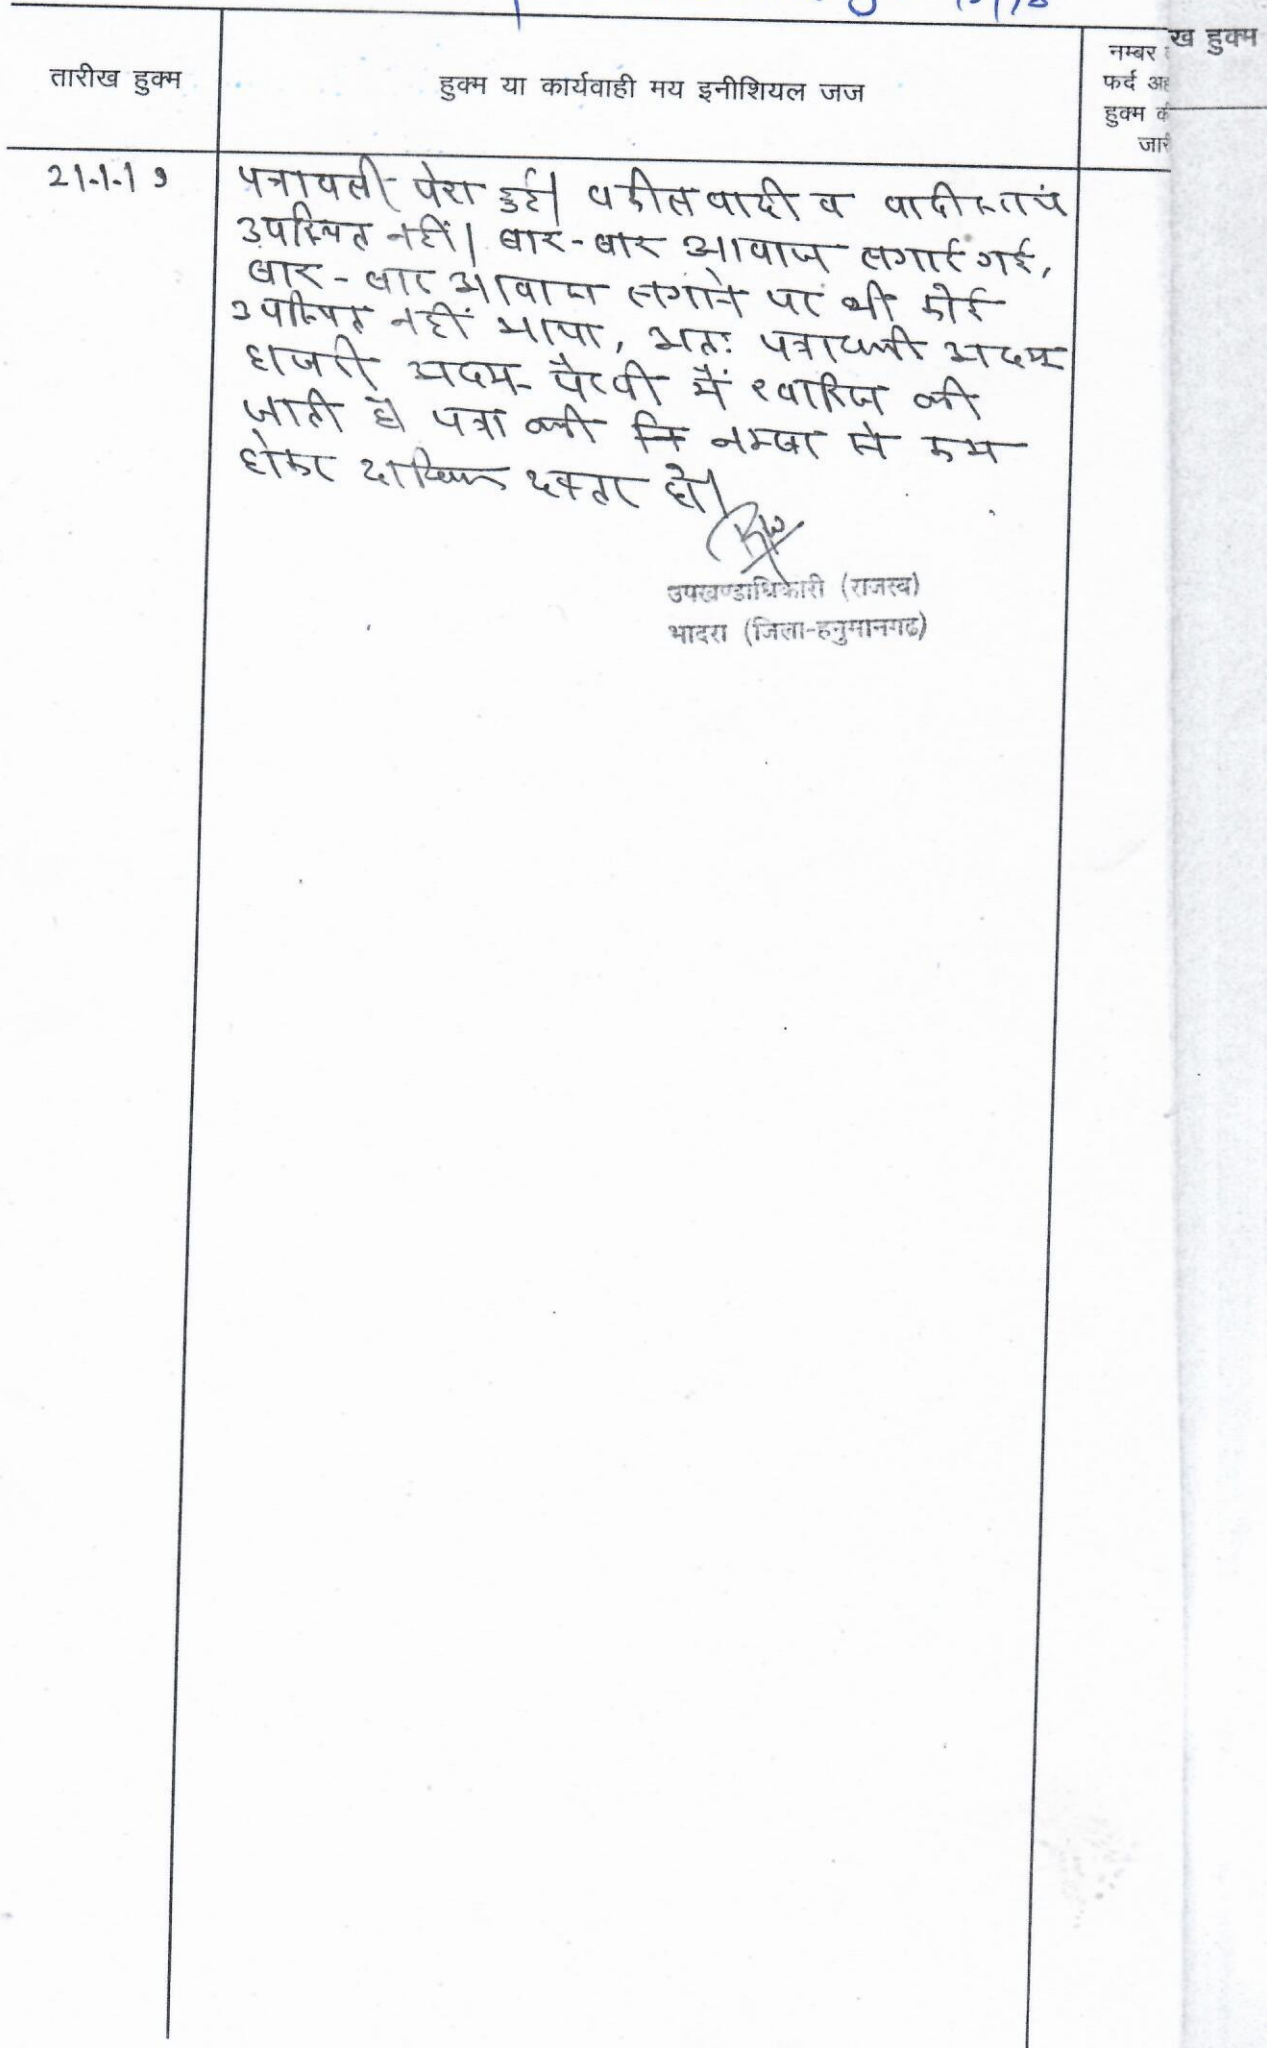 तारीख हुक्म
हुक्म या कार्यवाही मय इनीशियल जज
नम्बर
फर्द अह
हुक्म की
जारी
ख हुक्म
21-1-19
पत्रावली पेश हुई। वकील वादी व वादी स्वयं
उपस्थित नहीं। बार-बार आवाज लगाई गई,
बार-बार आवाज लगाने पर भी कोई
उपस्थित नहीं आया, अतः पत्रावली अदम
हाजरी अदम पैरवी में खारिज की
जाती है। पत्रावली नम्बर से कम
होकर दाखिल दफ्तर हो।
उपखण्डाधिकारी (राजस्व)
भादरा (जिला-हनुमानगढ)